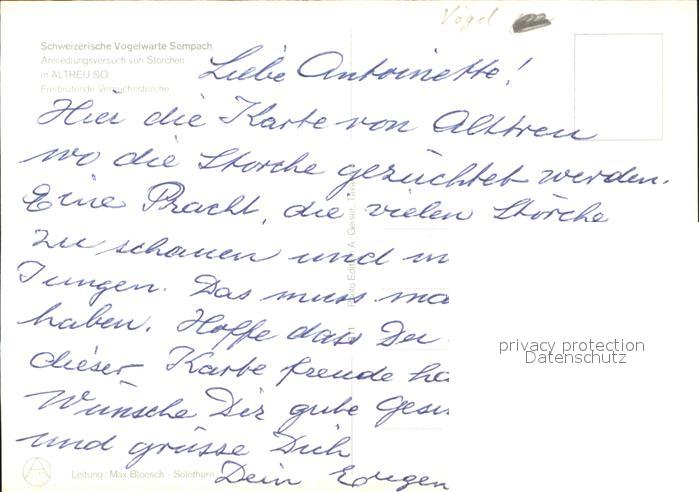 Vögel
Schweizerische Vogelwarte Sempach
Ansiedlungsversuch von Störchen
in ALTREU SO.
Freibrütende Versuchsstörche
Liebe Antoinette!
Hier die Karte von Alttreu
wo die Storche gezüchtet werden.
Eine Pracht, die vielen Störche
zu schauen und
Jungen. Das muss ma
haben. Hoffe dass Du
dieser Karte freude ha
Wünsche Dir gute Gesu
und grüsse Dich
Dein Eugen
Photo Edition A. Geiser,
privacy protection
Datenschutz
Leitung: Max Bloesch - Solothurn